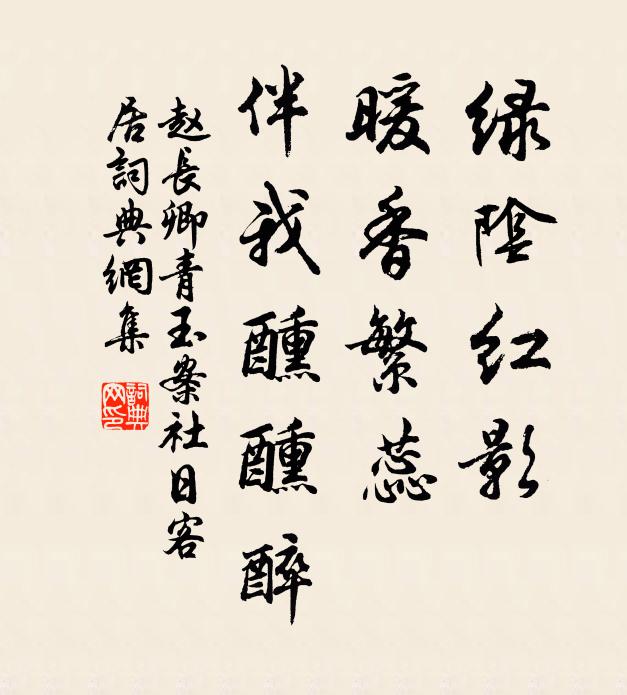 绿陰红影
暖香繁蕊
伴我醺醺醉
赵長卿青玉案社日客
居詞典網集
詞典网印